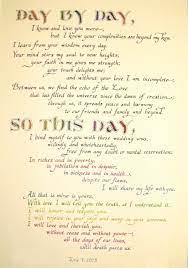 DAY BY DAY,
I know and love you more—
but I know your complexities are beyond my ken.
I learn from your wisdom every day.
Your mind stirs my soul to new heights;
your faith in me gives me strength;
your truth delights me;
and without your love I am incomplete—
Between us, we find the echo of the Love
that has filled the universe since the dawn of creation—
through us, it spreads peace and harmony
to our friends and family and beyond.
SO THIS DAY,
I bind myself to you with these wedding vows,
wittingly and wholeheartedly,
free from any doubt or mental reservation:
In riches and in poverty,
in jubilation and in despair,
in sickness and in health—
despite our flaws,
I will share my life with you.
All that is mine is yours.
With love I will tell you the truth, as I understand it.
I will honor and respect you,
I will rejoice in your joys and weep in your sorrows
and will, with love, cherish you,
without cease and without pause—
all the days of our lives,
until death parts us.
2003